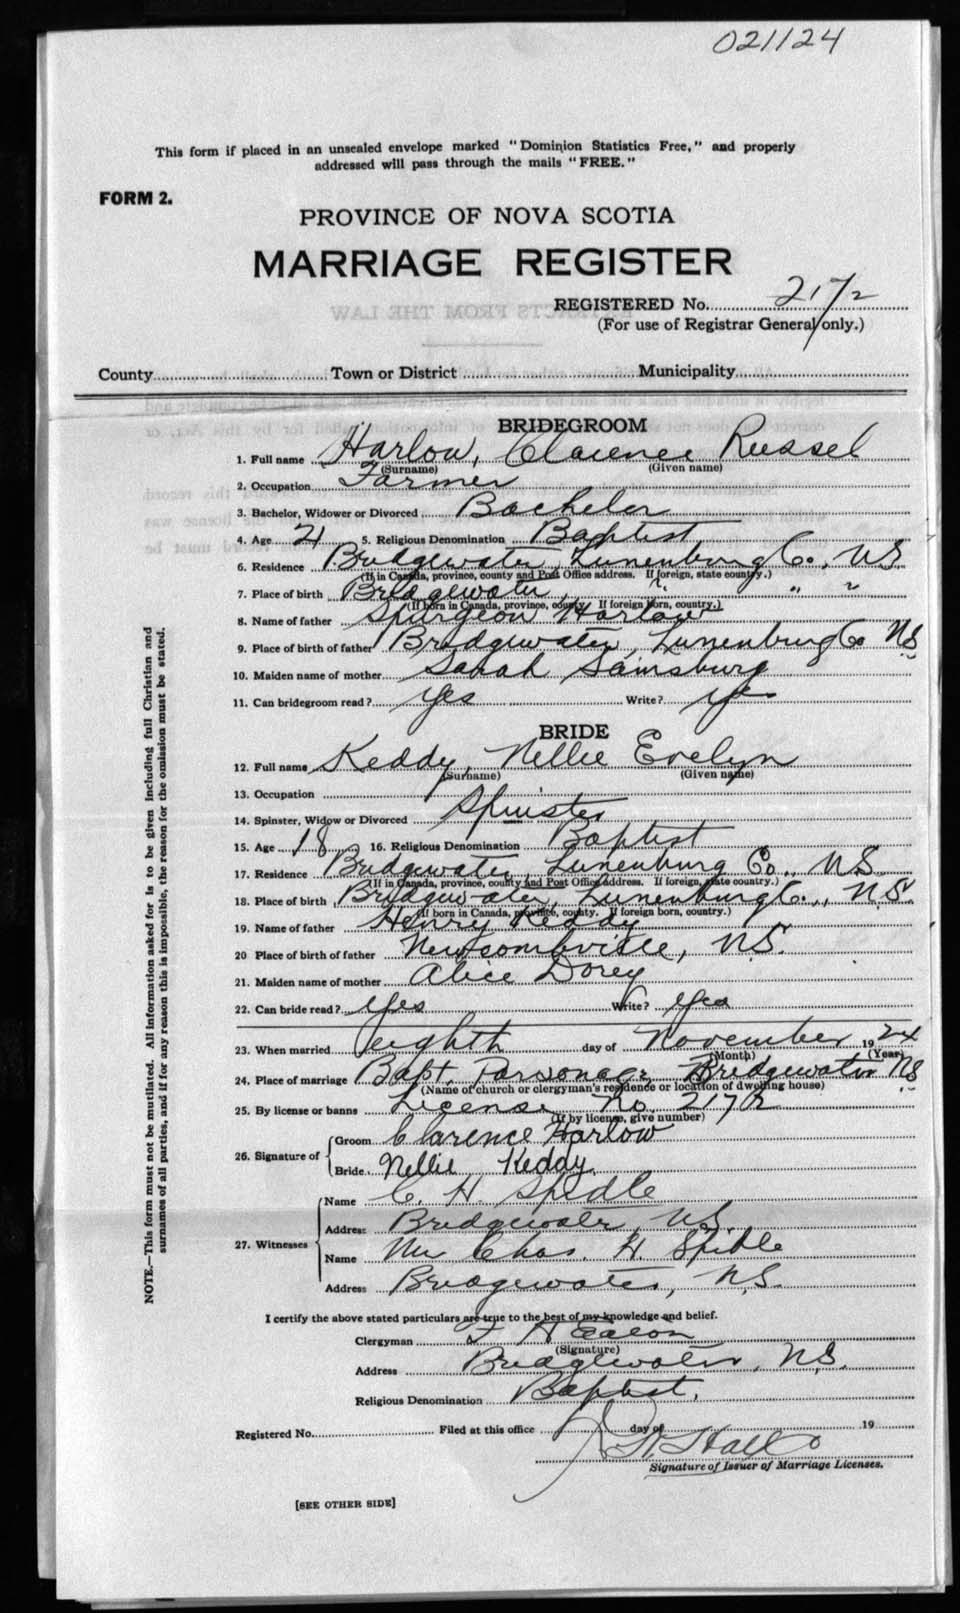 021124
This form if placed in an unsealed envelope marked "Dominion Statistics Free," and properly
addressed will pass through the mails "FREE."
FORM 2.
PROVINCE OF NOVA SCOTIA
MARRIAGE REGISTER
REGISTERED No. 2172
(For use of Registrar General only.)
County Town or District Municipality
BRIDEGROOM
1. Full name Harlow, Clarence Russel
(Surname) (Given name)
2. Occupation Farmer
3. Bachelor, Widower or Divorced Bachelor
4. Age 21 5. Religious Denomination Baptist
6. Residence Bridgewater, Lunenburg Co., N.S.
(If in Canada, province, county and Post Office address. If foreign, state country.)
7. Place of birth Bridgewater, " " "
(If born in Canada, province, county. If foreign born, country.)
8. Name of father Spurgeon Harlow
9. Place of birth of father Bridgewater, Lunenburg Co NS
10. Maiden name of mother Sarah Sainsburg
11. Can bridegroom read? yes Write? yes
BRIDE
12. Full name Keddy, Nellie Evelyn
(Surname) (Given name)
13. Occupation
14. Spinster, Widow or Divorced Spinster
15. Age 18 16. Religious Denomination Baptist
17. Residence Bridgewater, Lunenburg Co., N.S.
(If in Canada, province, county and Post Office address. If foreign, state country.)
18. Place of birth Bridgewater, Lunenburg Co., N.S.
(If born in Canada, province, county. If foreign born, country.)
19. Name of father Henry Keddy
20 Place of birth of father Newcombville, N.S.
21. Maiden name of mother Alice Dorey
22. Can bride read? yes Write? yes
23. When married eighth day of November 1924
(Month) (Year)
24. Place of marriage Bapt. Parsonage Bridgewater NS
(Name of church or clergyman's residence or location of dwelling house)
25. By license or banns License No. 2172
(If by license, give number)
26. Signature of Groom Clarence Harlow
Bride Nellie Keddy
27. Witnesses Name C. H. Spidle
Address Bridgewater, N.S.
Name Mrs Chas. H. Spidle
Address Bridgewater, N.S.
I certify the above stated particulars are true to the best of my knowledge and belief.
Clergyman F H Eaton
(Signature)
Address Bridgewater, N.S.
Religious Denomination Baptist.
Registered No. Filed at this office day of 19
Signature of Issuer of Marriage Licenses.
[SEE OTHER SIDE]
NOTE.—This form must not be mutilated. All information asked for is to be given including full Christian and
surnames of all parties, and if for any reason this is impossible, the reason for the omission must be stated.